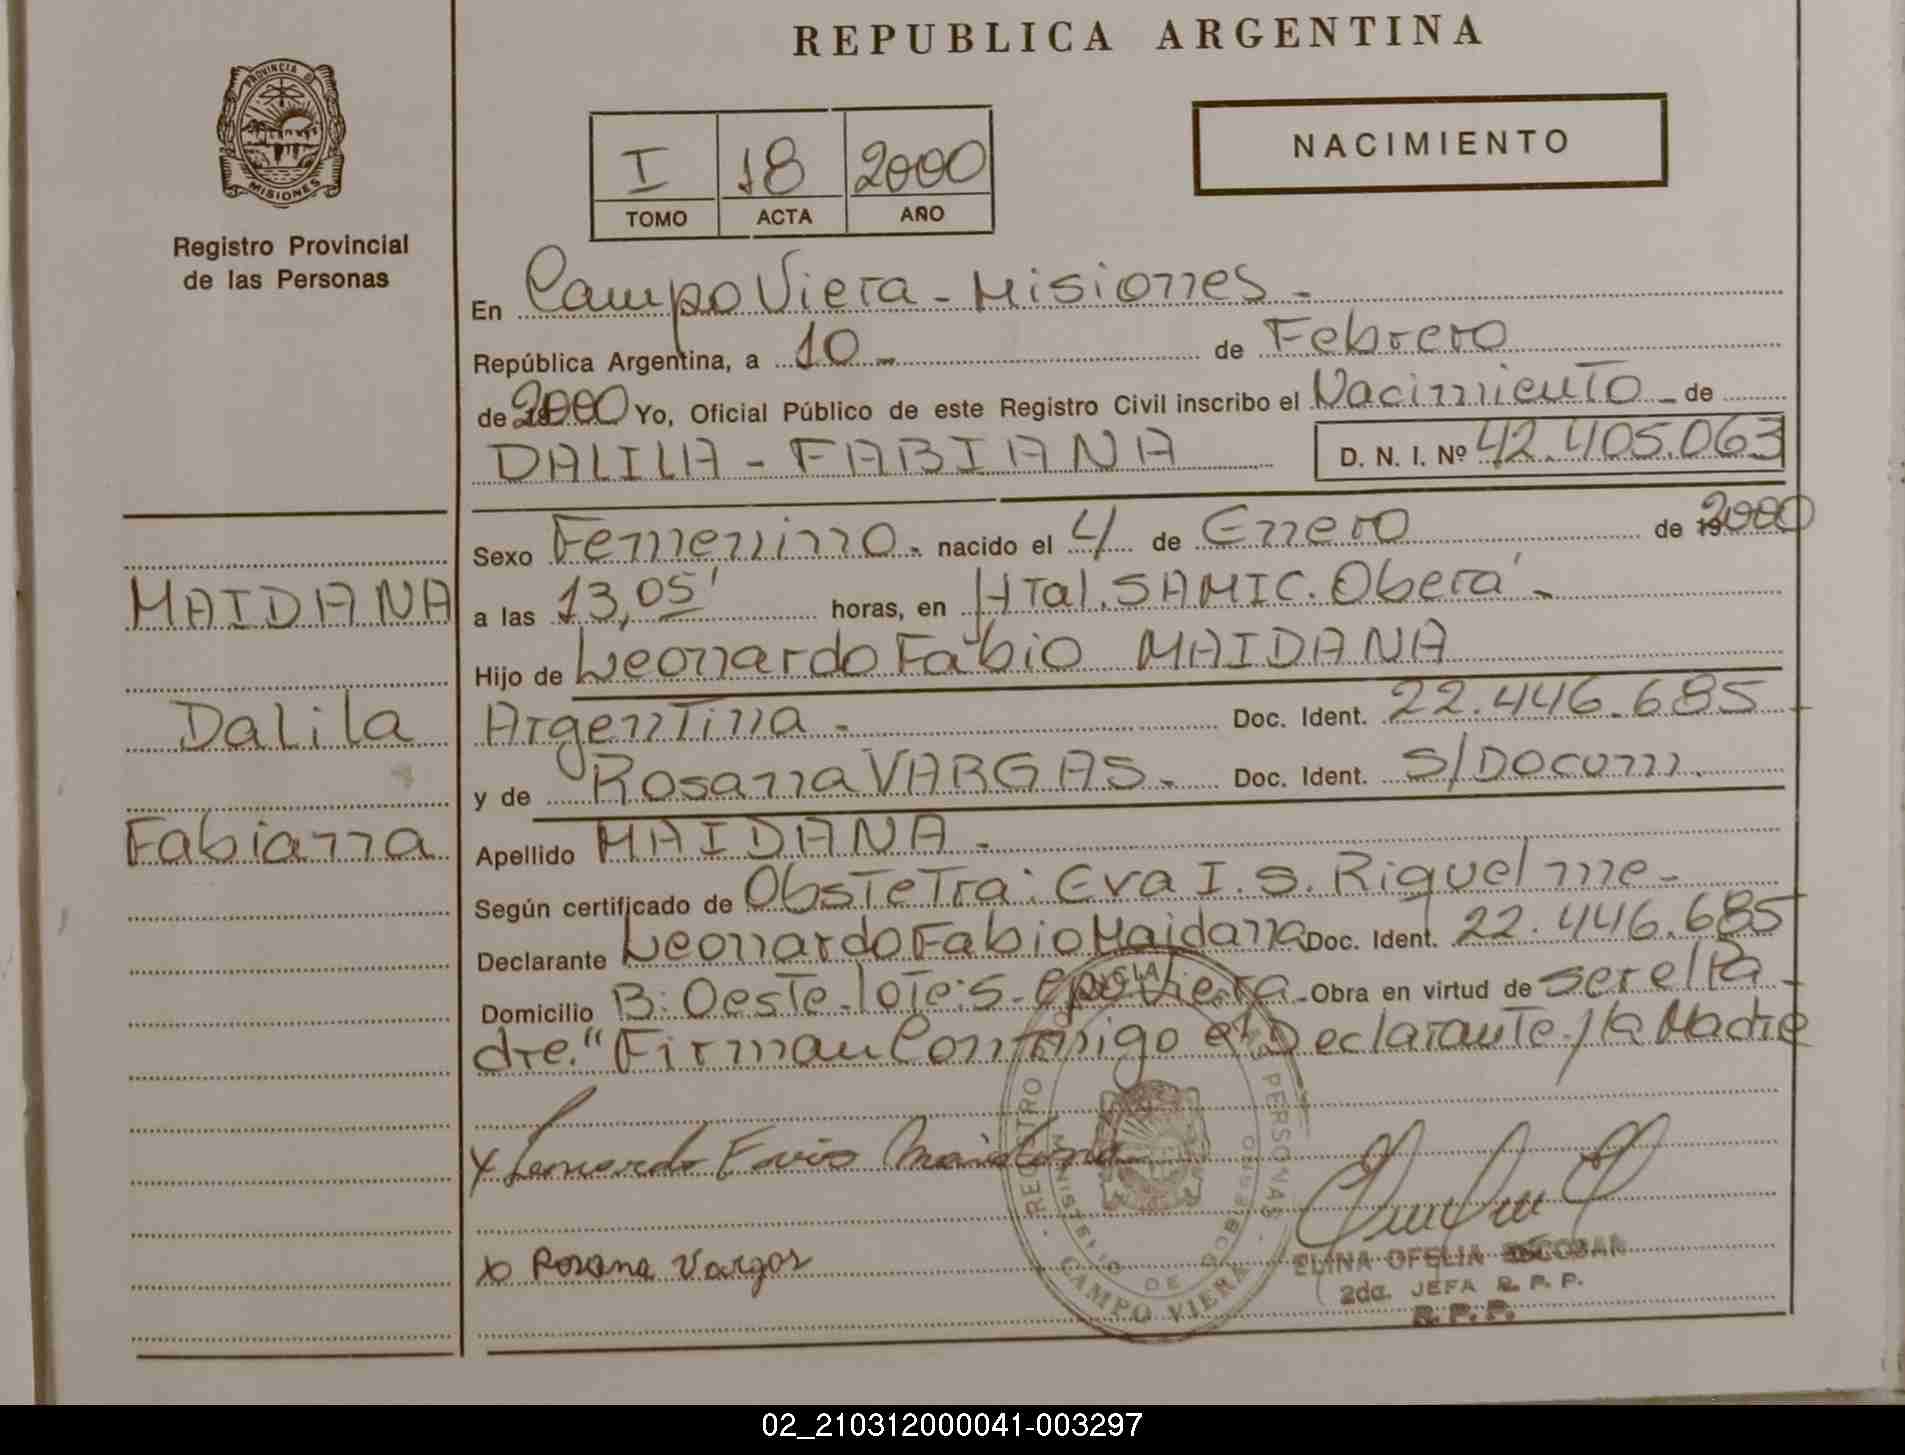 REPUBLICA ARGENTINA
PROVINCIA D
MISIONES
Registro Provincial
de las Personas
I 18 2000
TOMO ACTA AÑO
NACIMIENTO
En Campo Viera - Misiones -
República Argentina, a 10 - de Febrero
de 2000 Yo, Oficial Público de este Registro Civil inscribo el Nacimiento - de
DALILA - FABIANA D. N. I. Nº 42.405.063
Sexo Femenino. nacido el 4 de Enero de 2000
a las 13,05' horas, en HTal. SAMIC. Oberá -
Hijo de Leonardo Fabio MAIDANA
Argentina - Doc. Ident. 22.446.685 -
y de Rosana VARGAS. Doc. Ident. S/Docum.
Apellido MAIDANA -
Según certificado de Obstetra: Eva I. S. Riquelme -
Declarante Leonardo Fabio Maidana Doc. Ident. 22.446.685
Domicilio B: Oeste - lote: 5 - Cpo Viera - Obra en virtud de ser el Pa -
dre." Firman Conmigo el Declarante y la Madre
MAIDANA
Dalila
Fabiana
x Leonardo Favio Maidana
x Rosana Vargas
REGISTRO PERSONAS
MINISTERIO DE GOBIERNO
CAMPO VIERA
ELINA OFELIA ESCOBAR
2da. JEFA R. P. P.
R. P. P.
02_210312000041-003297